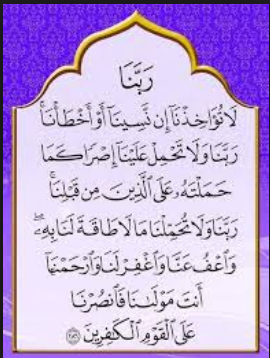 رَبَّنَا
لَا تُؤَاخِذْنَآ إِن نَّسِينَآ أَوْ أَخْطَأْنَاۚ
رَبَّنَا وَلَا تَحْمِلْ عَلَيْنَآ إِصْرًا كَمَا
حَمَلْتَهُۥ عَلَى ٱلَّذِينَ مِن قَبْلِنَاۚ
رَبَّنَا وَلَا تُحَمِّلْنَا مَا لَا طَاقَةَ لَنَا بِهِۦۖ
وَٱعْفُ عَنَّا وَٱغْفِرْ لَنَا وَٱرْحَمْنَآ
أَنتَ مَوْلَىٰنَا فَٱنصُرْنَا
عَلَى ٱلْقَوْمِ ٱلْكَٰفِرِينَ ٢٨٦